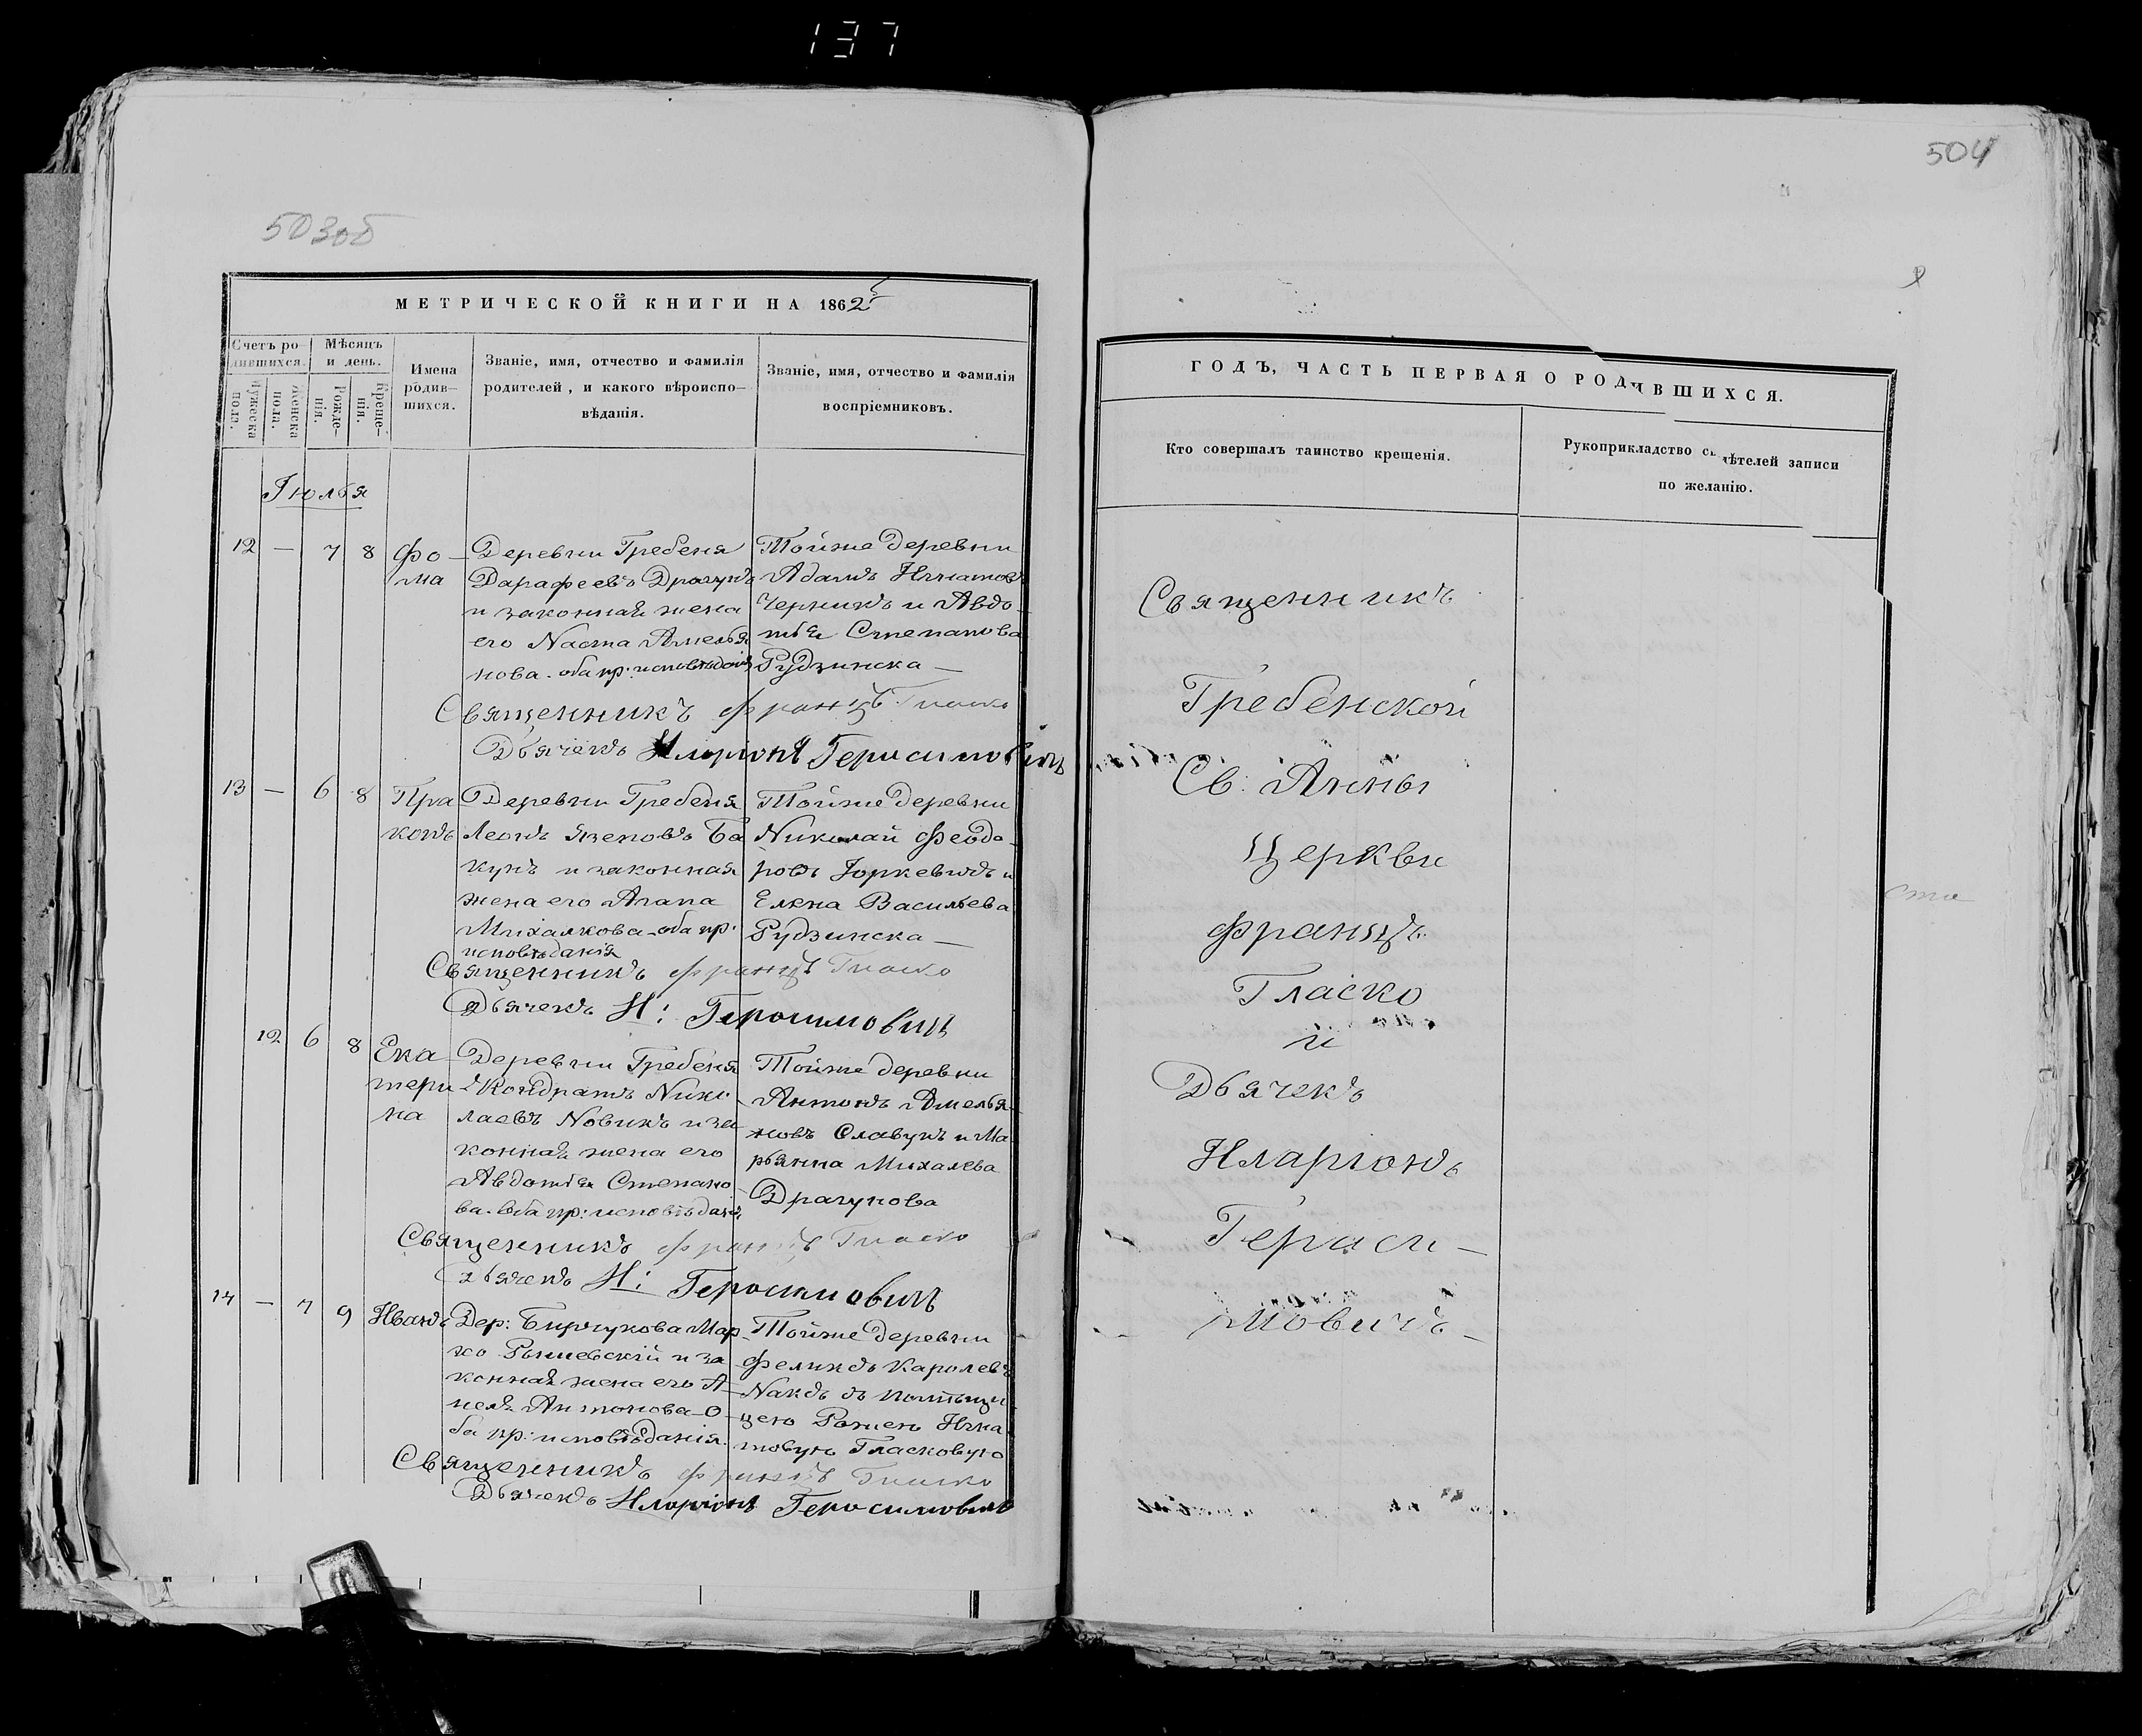 137
503об
504
МЕТРИЧЕСКОЙ КНИГИ НА 1862
Счетъ ро-
дившихся.
Мѣсяцъ
и день.
Имена
родив-
шихся.
Званіе, имя, отчество и фамилія
родителей, и какого вѣроиспо-
вѣданія.
Званіе, имя, отчество и фамилія
воспріемниковъ.
Мужеска
пола.
Женска
пола.
Рожде-
нія.
Креще-
нія.
Іюлья
12 — 7 8 Фо-
ма
Деревни Гребеня
Дарафеевъ Драгунъ
и законная жена
его Nаста Амелья
нова. оба пр: исповѣданія
Тойже деревни
Адамъ Игнатовъ
Черникъ и Авдо-
тья Степанова
Рудзинска —
Священникъ Францъ Гласко
Дьячекъ Иларіонъ Герасимовичъ
13 — 6 8 Пра
копъ
Деревни Гребеня
Леонъ Язеповъ Ба
кунъ и законная
жена его Агапа
Михалкова - оба пр.
исповѣданія
Тойже деревни
Nиколай Феодо-
ровъ Юркевичъ и
Елена Васильева
Рудзинска —
Священникъ Францъ Гласко
Дьячекъ И: Герасимовичъ
12 6 8 Ека
тери
на
Деревни Гребеня
Кондратъ Nико
лаевъ Nовикъ и за
конная жена его
Авдотья Степано
ва. оба пр: исповѣданія
Тойже деревни
Антонъ Амелья-
новъ Славунъ и Ма
рьянна Михалева
Драгунова
Священникъ Францъ Гласко
Дьячекъ И: Герасимовичъ
14 — 7 9 Иванъ
Дер: Бирчукова Мар
ко и за
конная жена его А-
неля Антонова - О-
ба пр: исповѣданія.
Тойже деревни
Феликсъ Каролевъ
Nакъ съ
Игна
товую Гласковую
Священникъ Францъ Гласко
Дьячекъ Иларіонъ Герасимовичъ
ГОДЪ, ЧАСТЬ ПЕРВАЯ О РОДИВШИХСЯ.
Кто совершалъ таинство крещенія.
Рукоприкладство свидѣтелей записи
по желанію.
Священникъ
Гребенской
Св: Анны
Церкви
Францъ
Гласко
и
Дьячекъ
Иларіонъ
Гераси-
мовичъ —